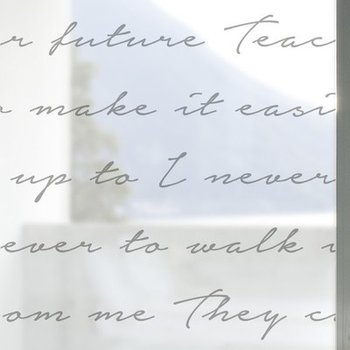 r future Teac
o make it easi
up to I never
ever to walk
om me They c